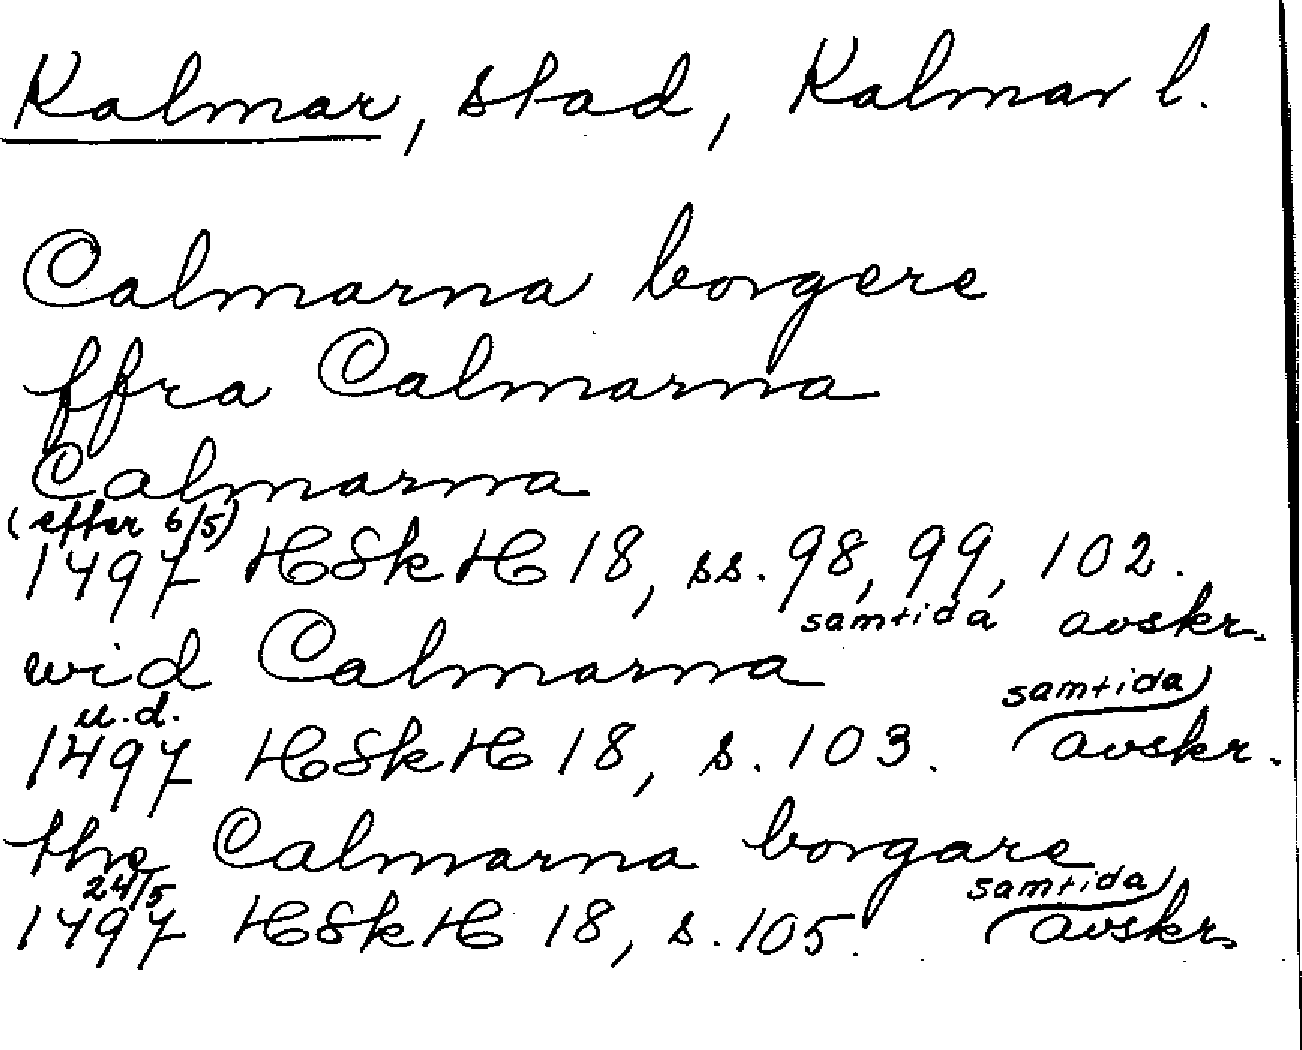 Kalmar, stad, Kalmar l.
Calmarna borgere
ffra Calmarna
Calmarna
(efter 6/5)
1497 HSkH 18, ss. 98, 99, 102.
samtida avskr.
wid Calmarna
u.d.
samtida
1497 HSkH 18, s. 103. avskr.
the Calmarna borgare
24/5
samtida
1497 HSkH 18, s. 105. avskr.